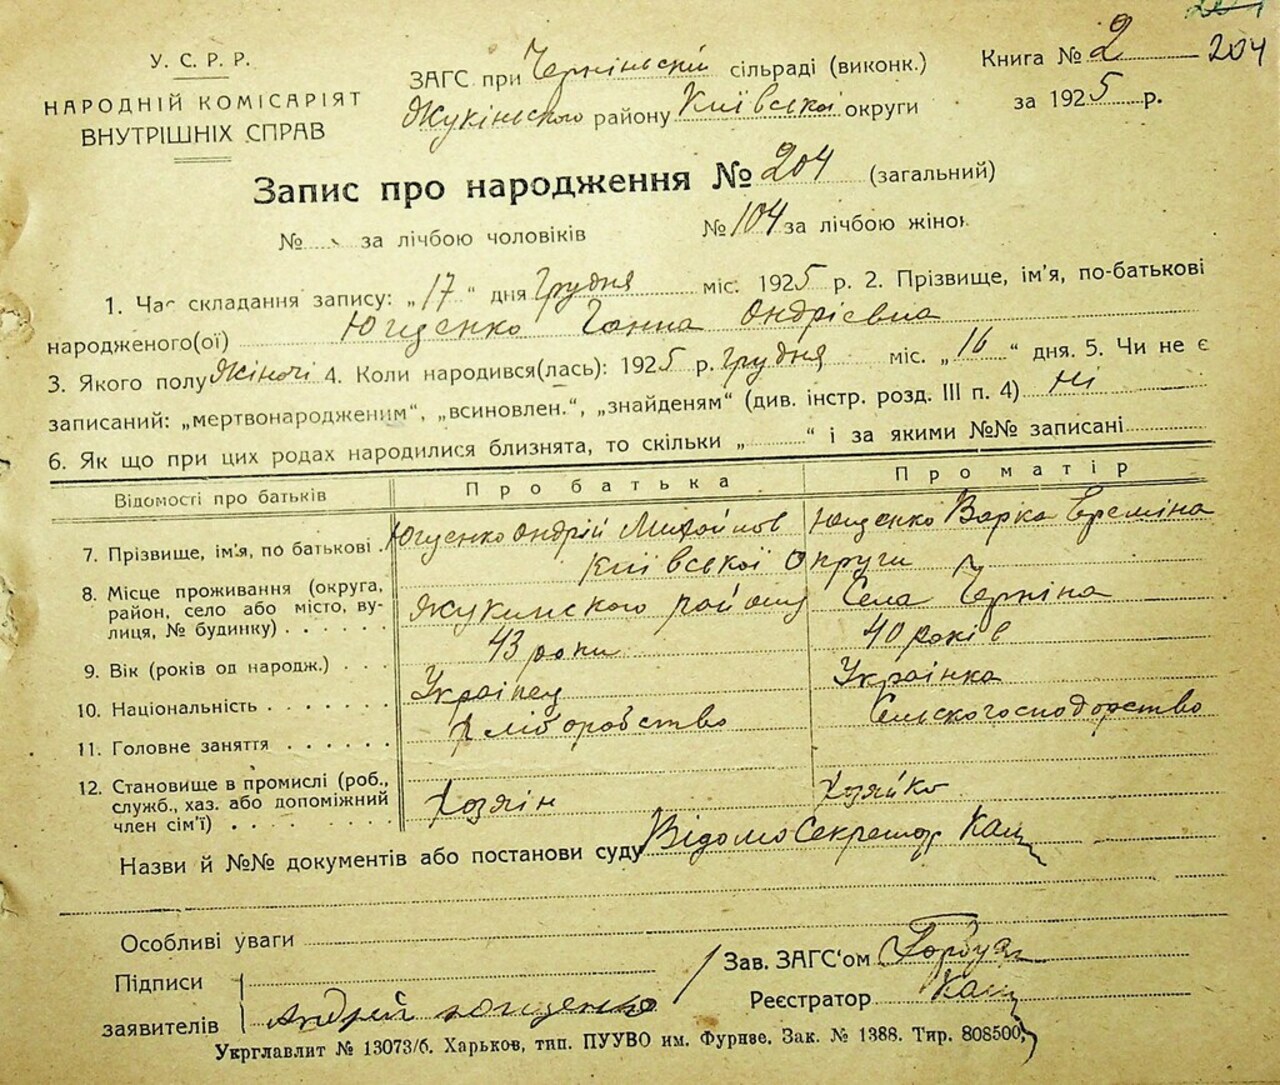 204
У. С. Р. Р.
НАРОДНІЙ КОМІСАРІЯТ
ВНУТРІШНІХ СПРАВ
ЗАГС при Чернінській сільраді (виконк.)
Жукінського району Київської округи
Книга № 2 204
за 1925 р.
Запис про народження № 204 (загальний)
№ за лічбою чоловіків № 104 за лічбою жінок
1. Час складання запису: „17“ дня Грудня міс. 1925 р. 2. Прізвище, ім'я, по-батькові
народженого(ої) Ющенко Ганна Ондрієвна
3. Якого полу Жіночі 4. Коли народився(лась): 1925 р. грудня міс. „16“ дня. 5. Чи не є
записаний: „мертвонародженим“, „всиновлен.“, „знайденям“ (див. інстр. розд. III п. 4) Ні
6. Як що при цих родах народилися близнята, то скільки „ “ і за якими №№ записані
Відомості про батьків Про батька Про матір
7. Прізвище, ім'я, по батькові Ющенко Ондрій Михайлов Ющенко Варка Ереміна
Київської Округи
8. Місце проживання (округа, район, село або місто, вулиця, № будинку) Жукинского району Села Черніна
9. Вік (років од народж.) 43 роки 40 років
10. Національність Українец Українка
11. Головне заняття Хліборобство Сельскогосподорство
12. Становище в промислі (роб., служб., хаз. або допоміжний член сім'ї) Хозяін Хозяйко
Назви й №№ документів або постанови суду Відомо Секретар
Особливі уваги
Підписи
заявителів Андрій Ющенко
Зав. ЗАГС'ом
Реєстратор
Укрглавлит № 13073/б. Харьков, тип. ПУУВО им. Фрунзе. Зак. № 1388. Тир. 808500.